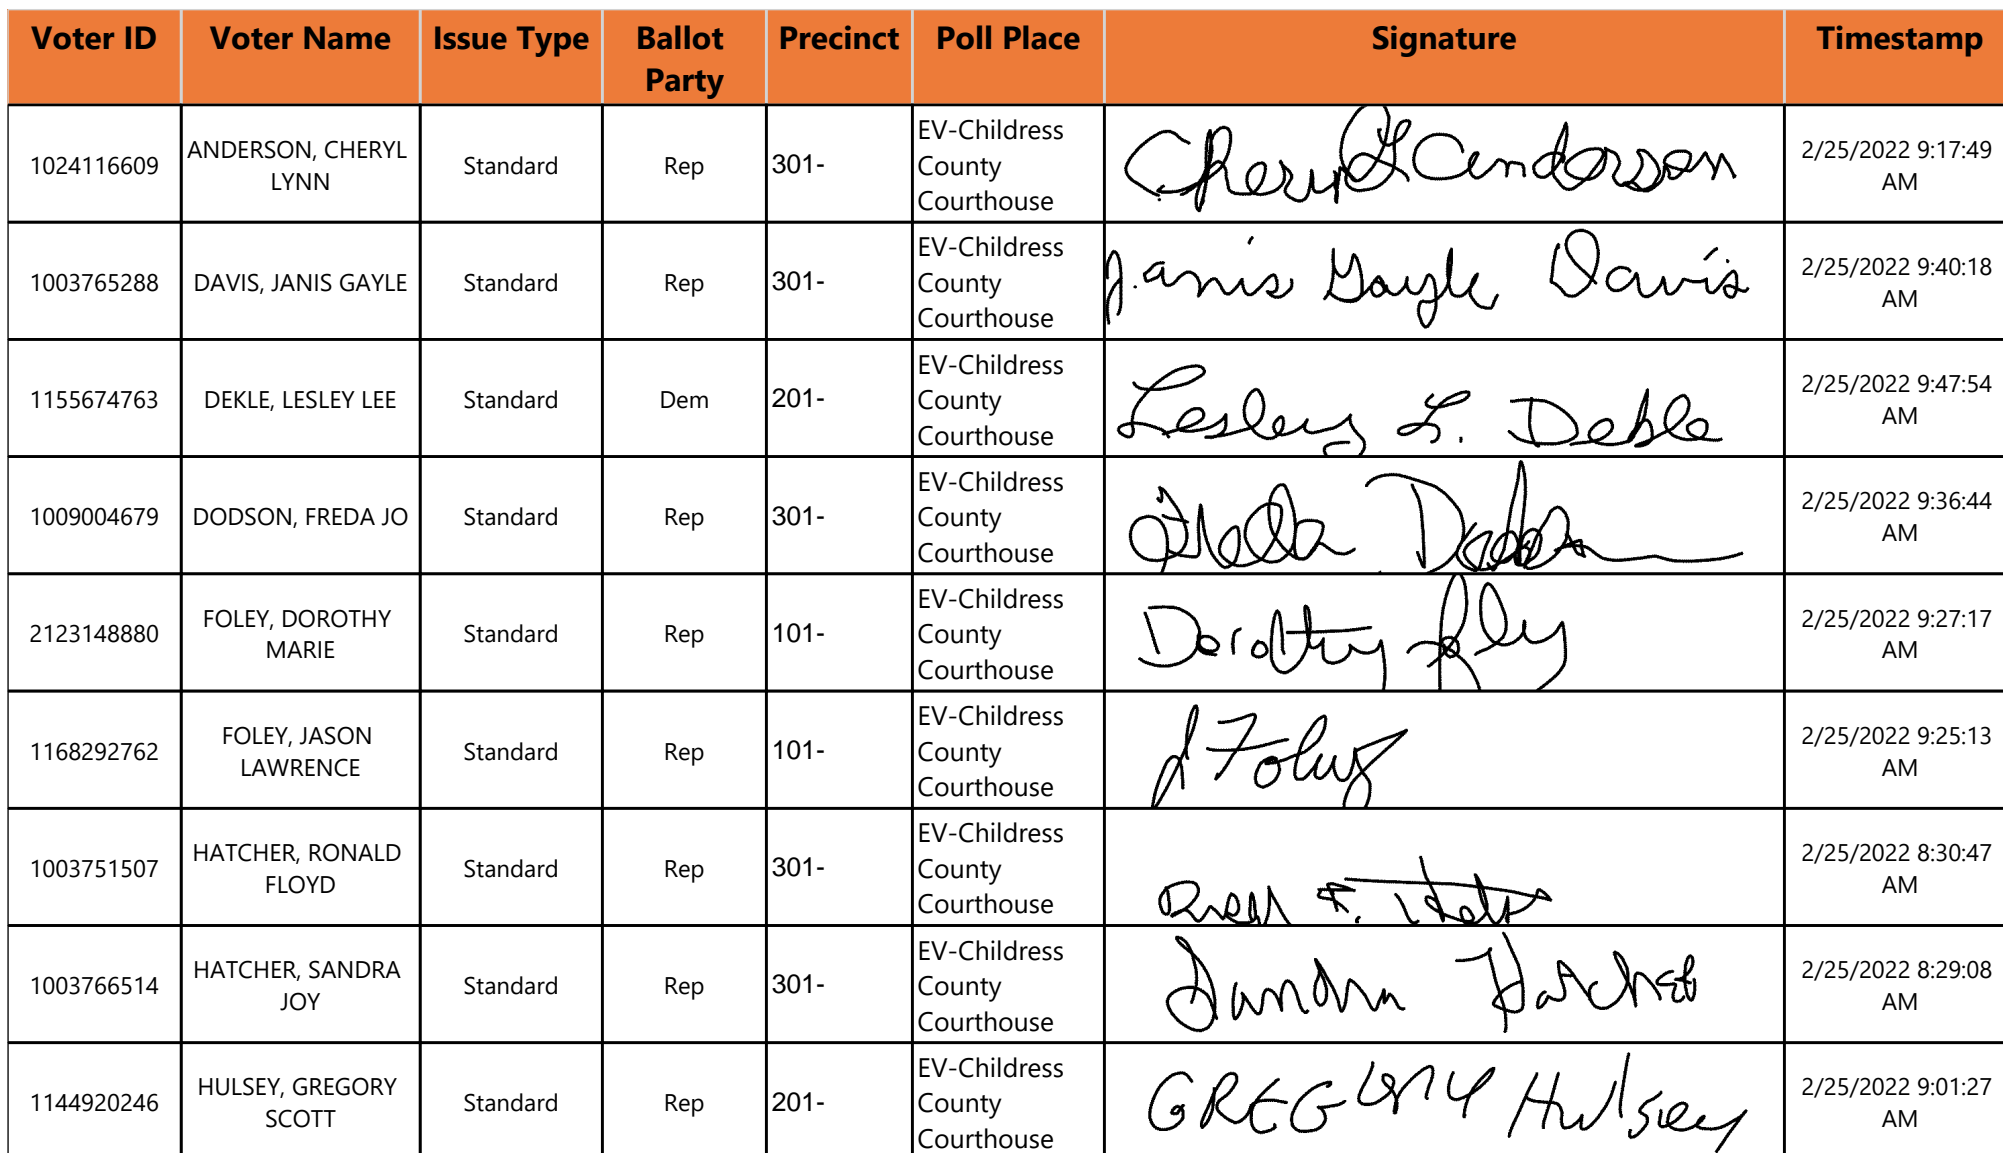 Voter ID Voter Name Issue Type Ballot Party Precinct Poll Place Signature Timestamp
1024116609 ANDERSON, CHERYL LYNN Standard Rep 301- EV-Childress County Courthouse Cheryl L Anderson 2/25/2022 9:17:49 AM
1003765288 DAVIS, JANIS GAYLE Standard Rep 301- EV-Childress County Courthouse Janis Gayle Davis 2/25/2022 9:40:18 AM
1155674763 DEKLE, LESLEY LEE Standard Dem 201- EV-Childress County Courthouse Lesley L. Dekle 2/25/2022 9:47:54 AM
1009004679 DODSON, FREDA JO Standard Rep 301- EV-Childress County Courthouse Freda Dodson 2/25/2022 9:36:44 AM
2123148880 FOLEY, DOROTHY MARIE Standard Rep 101- EV-Childress County Courthouse Dorothy Foley 2/25/2022 9:27:17 AM
1168292762 FOLEY, JASON LAWRENCE Standard Rep 101- EV-Childress County Courthouse J Foley 2/25/2022 9:25:13 AM
1003751507 HATCHER, RONALD FLOYD Standard Rep 301- EV-Childress County Courthouse 2/25/2022 8:30:47 AM
1003766514 HATCHER, SANDRA JOY Standard Rep 301- EV-Childress County Courthouse Sandra Hatcher 2/25/2022 8:29:08 AM
1144920246 HULSEY, GREGORY SCOTT Standard Rep 201- EV-Childress County Courthouse GREGORY Hulsey 2/25/2022 9:01:27 AM